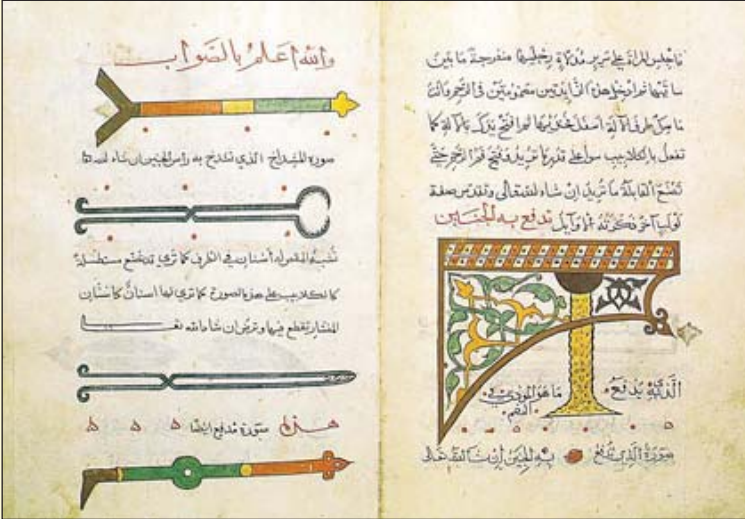 فاجلس المراة على سرير مدلاة رجليها منفرجة ما بين
ساقيها ثم ادخل هذه الزايدتين مضمومتين في الرحم وانت
ماسك طرف الآلة اسفل فخذيها ثم افتح يدك بالآلة كما
تفعل بالكلاليب سوا على قدر ما تريد فتح فم الرحم حتى
تصنع القابلة ما تريد ان شاء لله تعالى وتقدس صفة
لولب آخر ذكرته الاوايل تدفع به الجنين
الذي يدفع ما هو المؤذي في
الفم
صورة الذي تدفع به الجنين إن شا الله تعالى
والله أعلم بالصواب
صورة المشداخ الذي تشدخ به رأس الجنين ان شاء الله
تشبه المقص له أسنان في الطرف كما ترى قد تصنع مستطيلة
كالكلاليب على هذه الصورة كما ترى لها اسنان كاسنان
المنشار تقطع بها وترض ان شاء الله تعا
هذه صورة مدفع ايضا ه ه ه